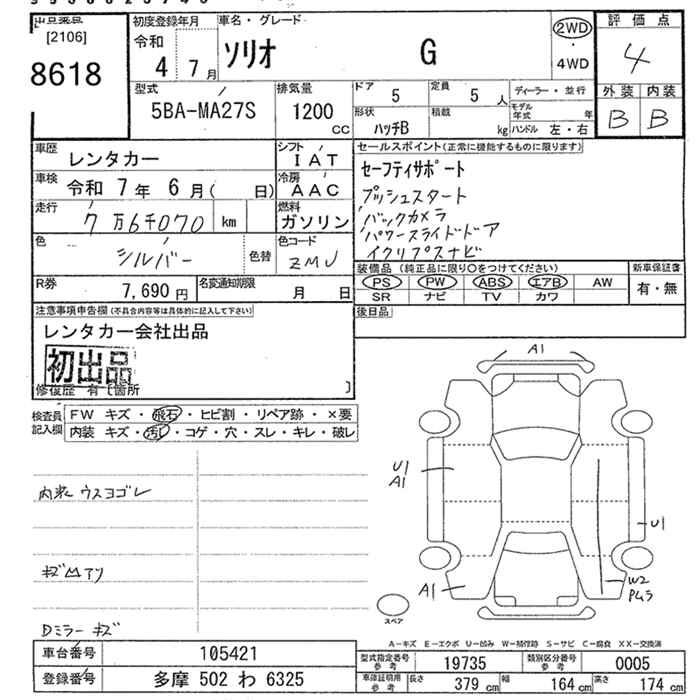 出品業者
[2106]
8618
初度登録年月
令和 4 7月
車名・グレード
ソリオ G
2WD
・
4WD
評価点
4
外装 内装
B B
型式
5BA-MA27S
排気量
1200 CC
ドア 5
定員 5人
ディーラー・並行
形状 ハッチB
積載 kg
モデル年式 年
ハンドル 左・右
車歴 レンタカー
シフト IAT
車検 令和 7年 6月( 日)
冷房 AAC
走行 7万6千070 km
燃料 ガソリン
色 シルバー
色替
色コード ZMJ
R券 7,690円
名変通知期限 月 日
セールスポイント(正常に機能するものに限ります)
セーフティサポート
プッシュスタート
バックカメラ
パワースライドドア
イクリプスナビ
装備品(純正品に限り○をつけてください)
PS PW ABS エアB AW
SR ナビ TV カワ
新車保証書
有・無
後日品
注意事項申告欄(不具合内容等は具体的に記入して下さい)
レンタカー会社出品
初出品
修復歴 有 [箇所 ]
検査員記入欄
FW キズ・飛石・ヒビ割・リペア跡・×要
内装 キズ・汚レ・コゲ・穴・スレ・キレ・破レ
内装 ウスヨゴレ
Dミラー キズ
A1
U1
A1
U1
A1
W2
スペア
A-キズ E-エクボ U-凹み W-補修跡 S-サビ C-腐食 XX-交換済
車台番号 105421
登録番号 多摩 502 わ 6325
型式指定番号 参考 19735
類別区分番号 参考 0005
車庫証明用 参考 長さ 379cm 幅 164cm 高さ 174cm